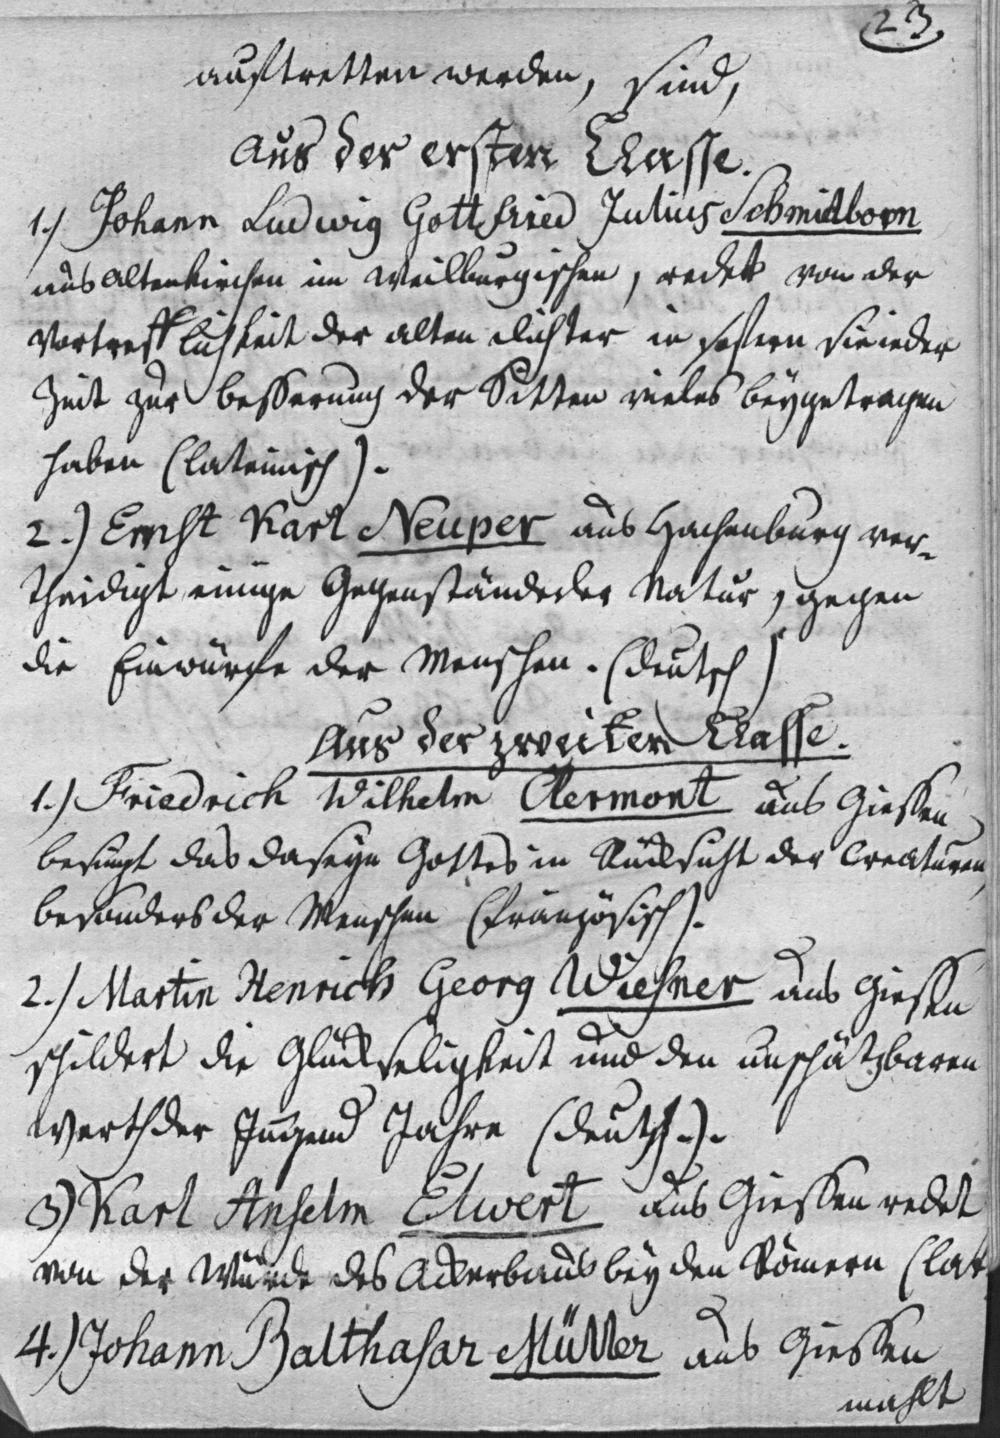 23
auftretten werden, sind,
Aus der ersten Classe.
1.) Johann Ludwig Gottfried Julius Schmidborn
aus Altenkirchen im Weilburgischen, redet von der
Vortrefflichkeit der alten Dichter in sofern sie ieder
Zeit zur besserung der Sitten vieles beygetragen
haben (lateinisch).
2.) Ernst Karl Neuper aus Hachenburg ver-
theidigt einige Gegenstände der Natur, gegen
die Einwürfe der Menschen. (deutsch)
Aus der zweiten Classe.
1.) Friedrich Wilhelm Clermont aus Giessen
besingt das daseyn Gottes in Rücksicht der Creaturen,
besonders der Menschen (französisch).
2.) Martin Henrich Georg Wiesner aus Giessen
schildert die Glückseligkeit und den unschätzbaren
Werth der Jugend Jahre (deutsch.).
3) Karl Anselm Elwert aus Giessen redet
von der Würde des Ackerbaus bey den Römern (lat
4.) Johann Balthasar Müller aus Giessen
mahlt